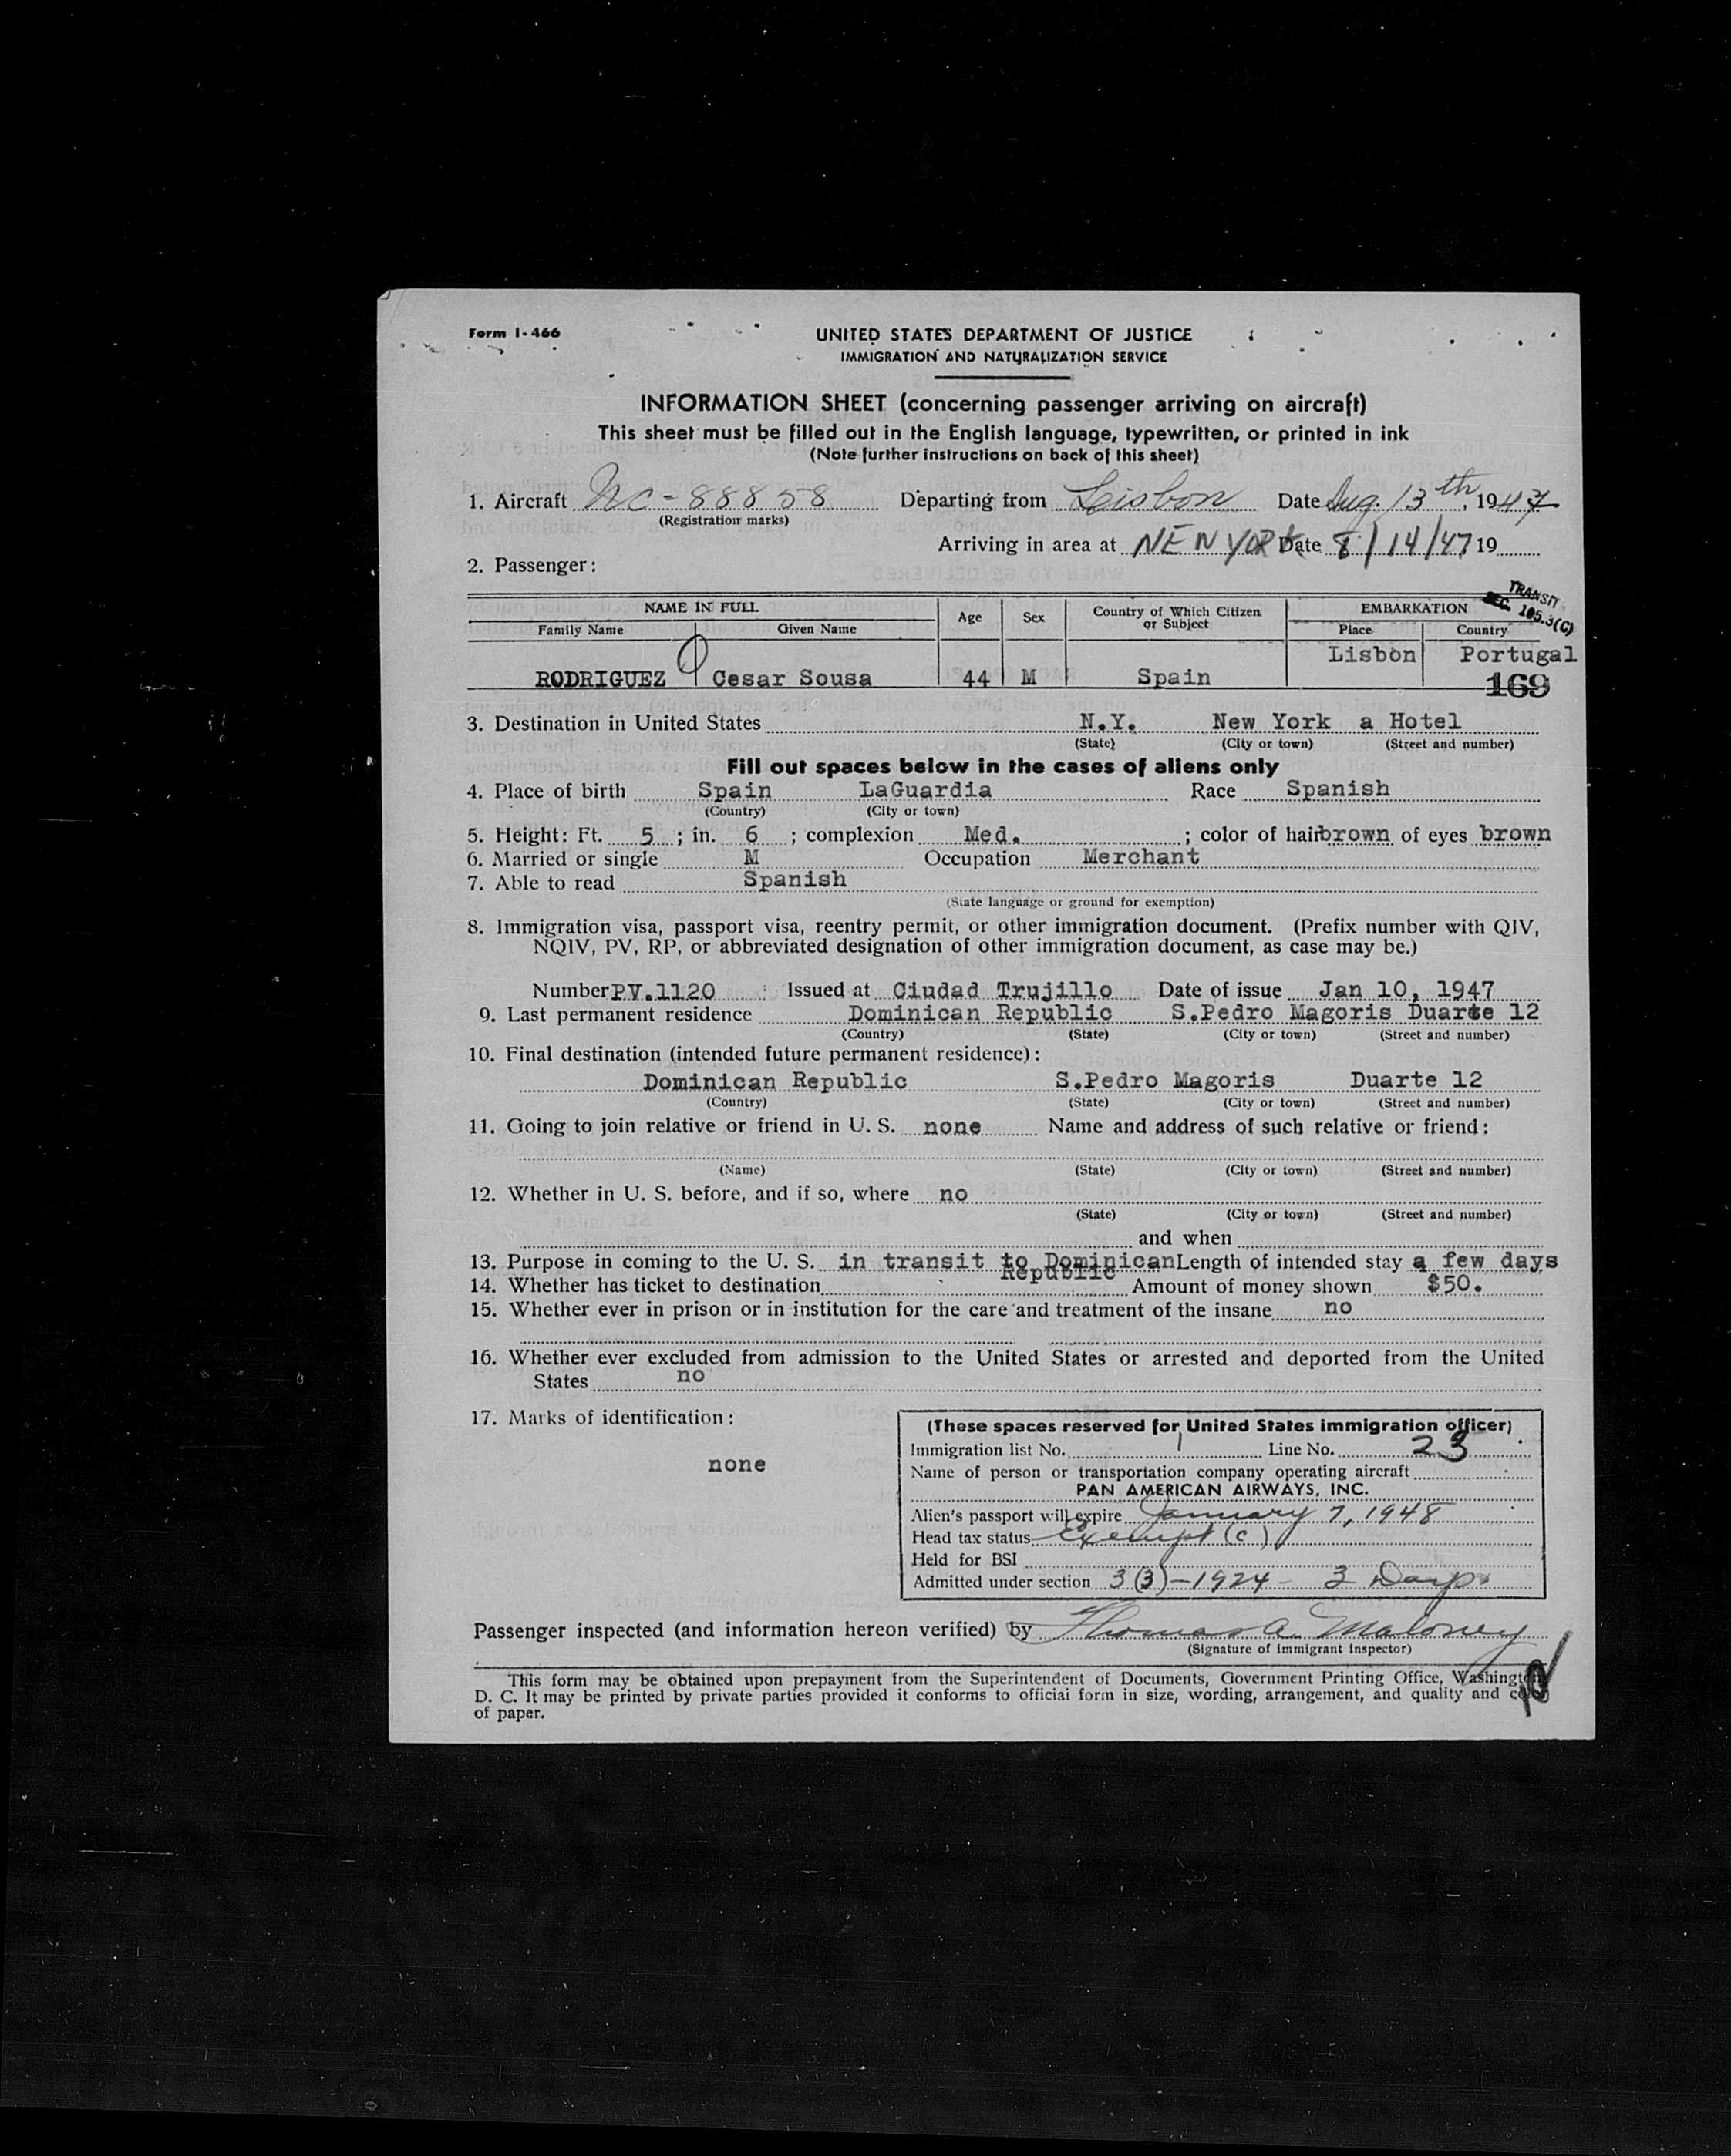 Form I-466
UNITED STATES DEPARTMENT OF JUSTICE
IMMIGRATION AND NATURALIZATION SERVICE
INFORMATION SHEET (concerning passenger arriving on aircraft)
This sheet must be filled out in the English language, typewritten, or printed in ink
(Note further instructions on back of this sheet)
1. Aircraft NC-88858 Departing from Lisbon Date Aug. 13th, 1947
(Registration marks)
Arriving in area at NEW YORK Date 8/14/47 19
2. Passenger:
TRANSIT
SEC. 105.3(C)
NAME IN FULL Age Sex Country of Which Citizen or Subject EMBARKATION
Family Name Given Name Place Country
Lisbon Portugal
RODRIGUEZ Cesar Sousa 44 M Spain
169
3. Destination in United States N.Y. New York a Hotel
(State) (City or town) (Street and number)
Fill out spaces below in the cases of aliens only
4. Place of birth Spain LaGuardia Race Spanish
(Country) (City or town)
5. Height: Ft. 5 ; in. 6 ; complexion Med. ; color of hair brown of eyes brown
6. Married or single M Occupation Merchant
7. Able to read Spanish
(State language or ground for exemption)
8. Immigration visa, passport visa, reentry permit, or other immigration document. (Prefix number with QIV,
NQIV, PV, RP, or abbreviated designation of other immigration document, as case may be.)
Number PV.1120 Issued at Ciudad Trujillo Date of issue Jan 10, 1947
9. Last permanent residence Dominican Republic S.Pedro Magoris Duarte 12
(Country) (State) (City or town) (Street and number)
10. Final destination (intended future permanent residence):
Dominican Republic S.Pedro Magoris Duarte 12
(Country) (State) (City or town) (Street and number)
11. Going to join relative or friend in U. S. none Name and address of such relative or friend:
(Name) (State) (City or town) (Street and number)
12. Whether in U. S. before, and if so, where no
(State) (City or town) (Street and number)
and when
13. Purpose in coming to the U. S. in transit to Dominican Length of intended stay a few days
Republic
14. Whether has ticket to destination Amount of money shown $50.
15. Whether ever in prison or in institution for the care and treatment of the insane no
16. Whether ever excluded from admission to the United States or arrested and deported from the United
States no
17. Marks of identification:
none
(These spaces reserved for United States immigration officer)
Immigration list No. 1 Line No. 23
Name of person or transportation company operating aircraft
PAN AMERICAN AIRWAYS, INC.
Alien's passport will expire January 7, 1948
Head tax status Exempt (c)
Held for BSI
Admitted under section 3(3)-1924 - 3 Days
Passenger inspected (and information hereon verified) by Thomas A. Maloney
(Signature of immigrant inspector)
This form may be obtained upon prepayment from the Superintendent of Documents, Government Printing Office, Washington
D. C. It may be printed by private parties provided it conforms to official form in size, wording, arrangement, and quality and color
of paper.